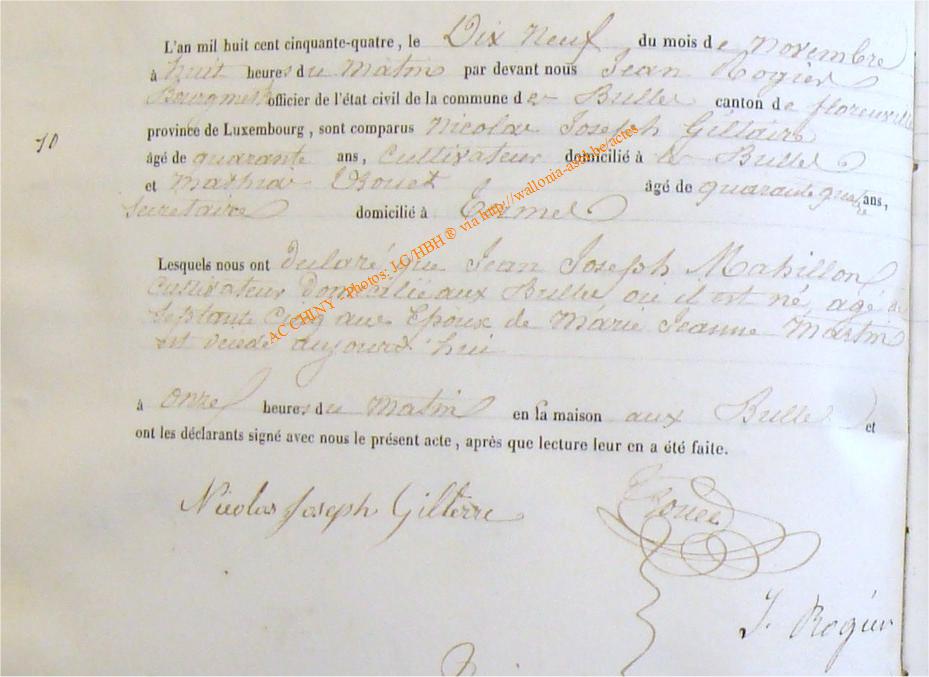 L'an mil huit cent cinquante-quatre, le Dix Neuf du mois de Novembre
à huit heures du Matin par devant nous Jean Rogier
officier de l'état civil de la commune de Bulles canton de florenville
10
province de Luxembourg, sont comparus Nicolas Joseph Giltaire
âgé de quarante ans, Cultivateur domicilié à Bulles
et Mathias âgé de quarante quatre ans,
Secretaire domicilié à
Lesquels nous ont declaré que Jean Joseph Mahillon
Cultivateur Domicilié aux Bulles, ou il est né, agé de
Septante Cinq ans Epoux de Marie Jeanne Martin
est aujourd'hui
à onze heures du Matin en la maison aux Bulles et
ont les déclarants signé avec nous le présent acte, après que lecture leur en a été faite.
Nicolas Joseph Gilterre
J. Rogier
AC CHINY - Photos: J-G/HBH ® via http://wallonia-asbl.be/actes